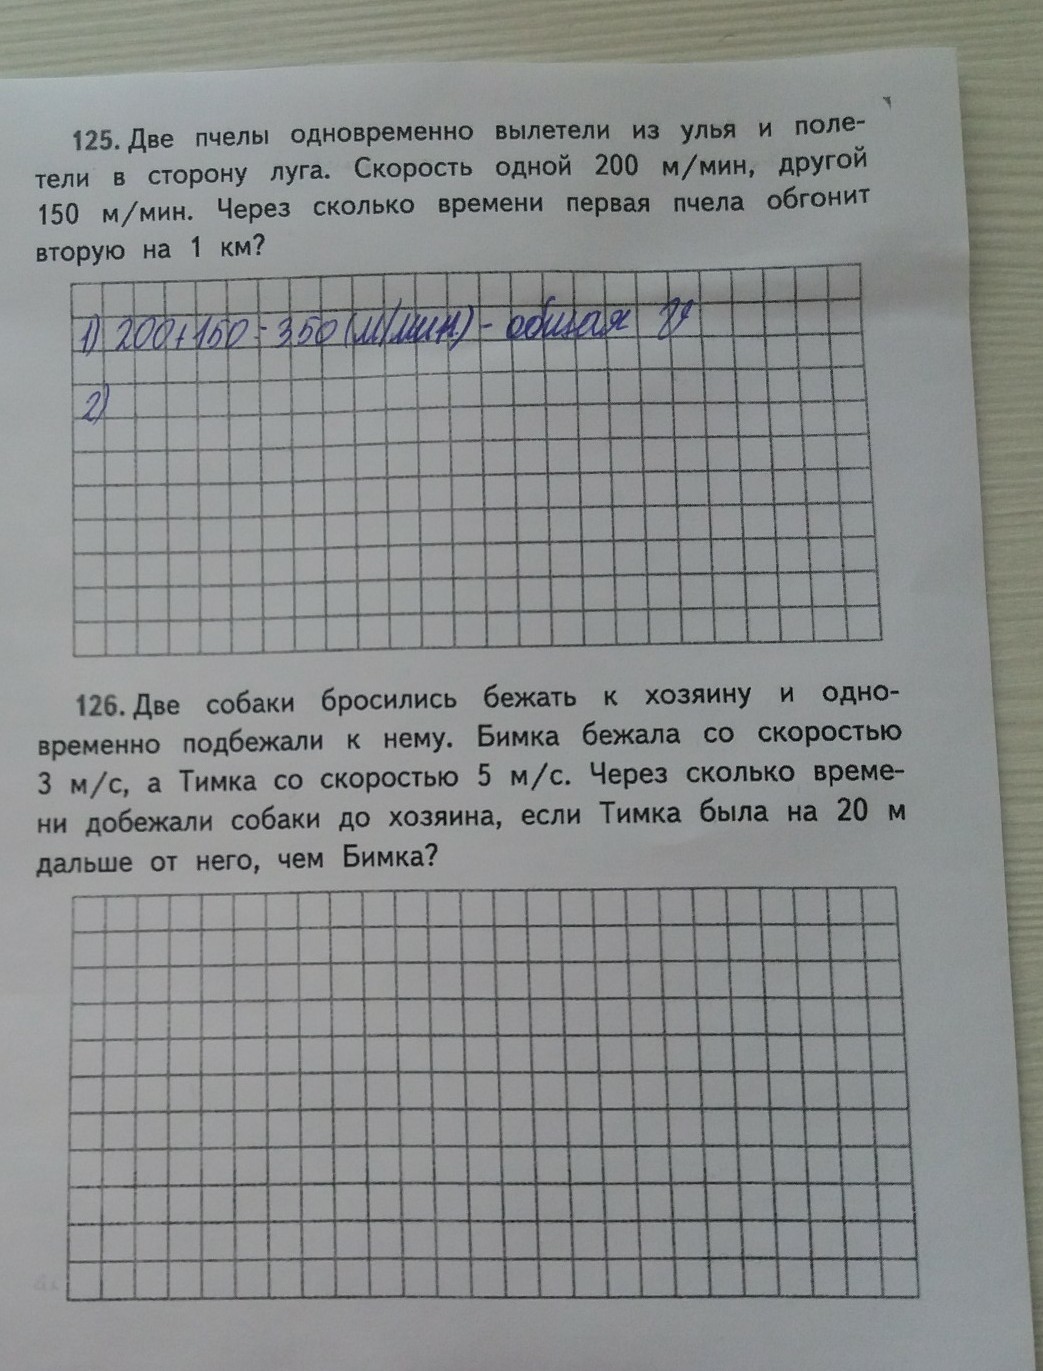 125. Две пчелы одновременно вылетели из улья и поле-
тели в сторону луга. Скорость одной 200 м/мин, другой
150 м/мин. Через сколько времени первая пчела обгонит
вторую на 1 км?
1) 200+150=350 (м/мин.) - общая
2)
126. Две собаки бросились бежать к хозяину и одно-
временно подбежали к нему. Бимка бежала со скоростью
3 м/с, а Тимка со скоростью 5 м/с. Через сколько време-
ни добежали собаки до хозяина, если Тимка была на 20 м
дальше от него, чем Бимка?